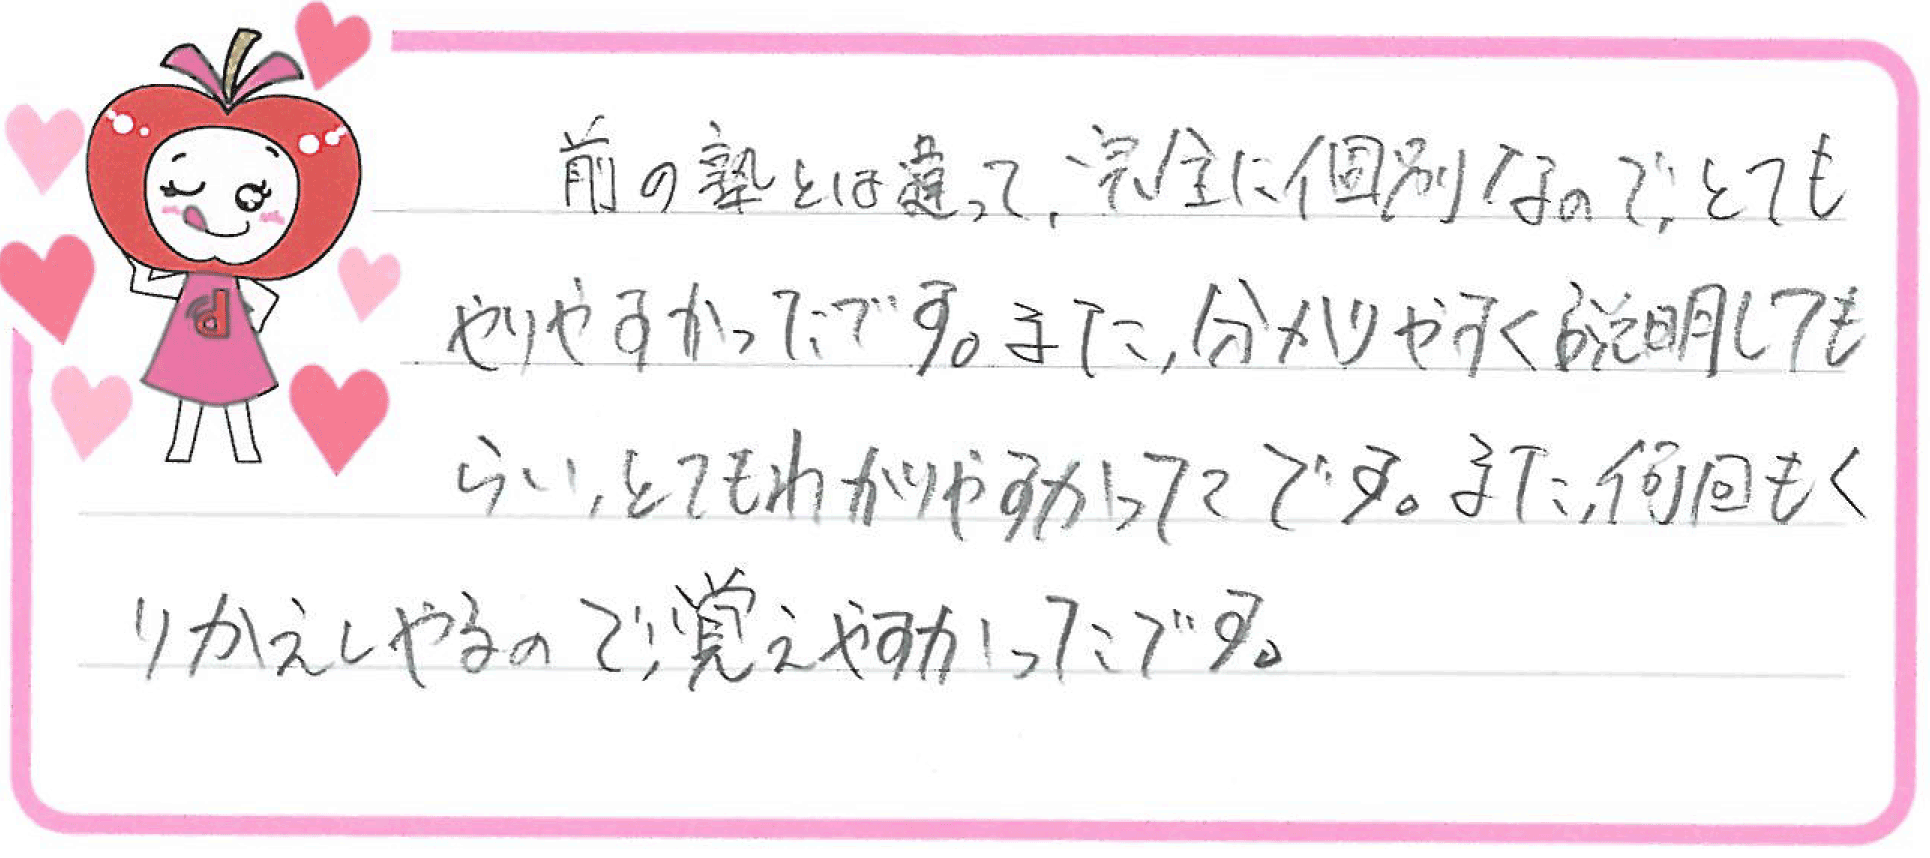 前の塾とは違って、完全に個別なので、とても
やりやすかったです。また、分かりやすく説明しても
らい、とてもわかりやすかったです。また、何回もく
りかえしやるので、覚えやすかったです。